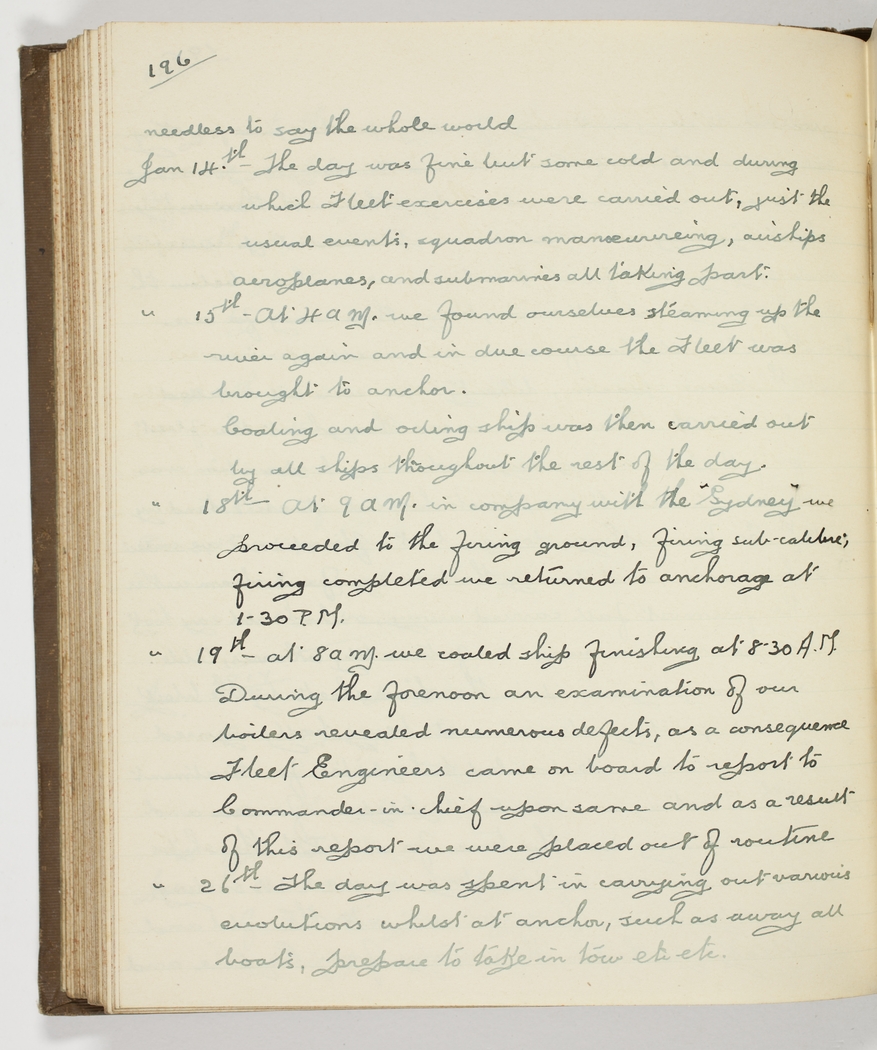 196
needless to say the whole world
Jan 14.th - The day was fine but some cold and during
which Fleet exercises were carried out, just the
usual events, squadron manoeuvreing, airships
aeroplanes, and submarines all taking part.
" 15th - At 4 a m. we found ourselves steaming up the
river again and in due course the Fleet was
brought to anchor.
Coaling and oiling ship was then carried out
by all ships thoughout the rest of the day.
" 18th - At 9 a m. in company with the "Sydney" we
proceeded to the firing ground, firing sub-calibre;
firing completed we returned to anchorage at
1-30 P.M.
" 19th - at 8 a m. we coaled ship finishing at 8-30 A.M.
During the forenoon an examination of our
boilers revealed numerous defects, as a consequence
Fleet Engineers came on board to report to
Commander-in-chief upon same and as a result
of this report we were placed out of routine
" 26th - The day was spent in carrying out various
evolutions whilst at anchor, such as away all
boats, prepare to take in tow etc etc.